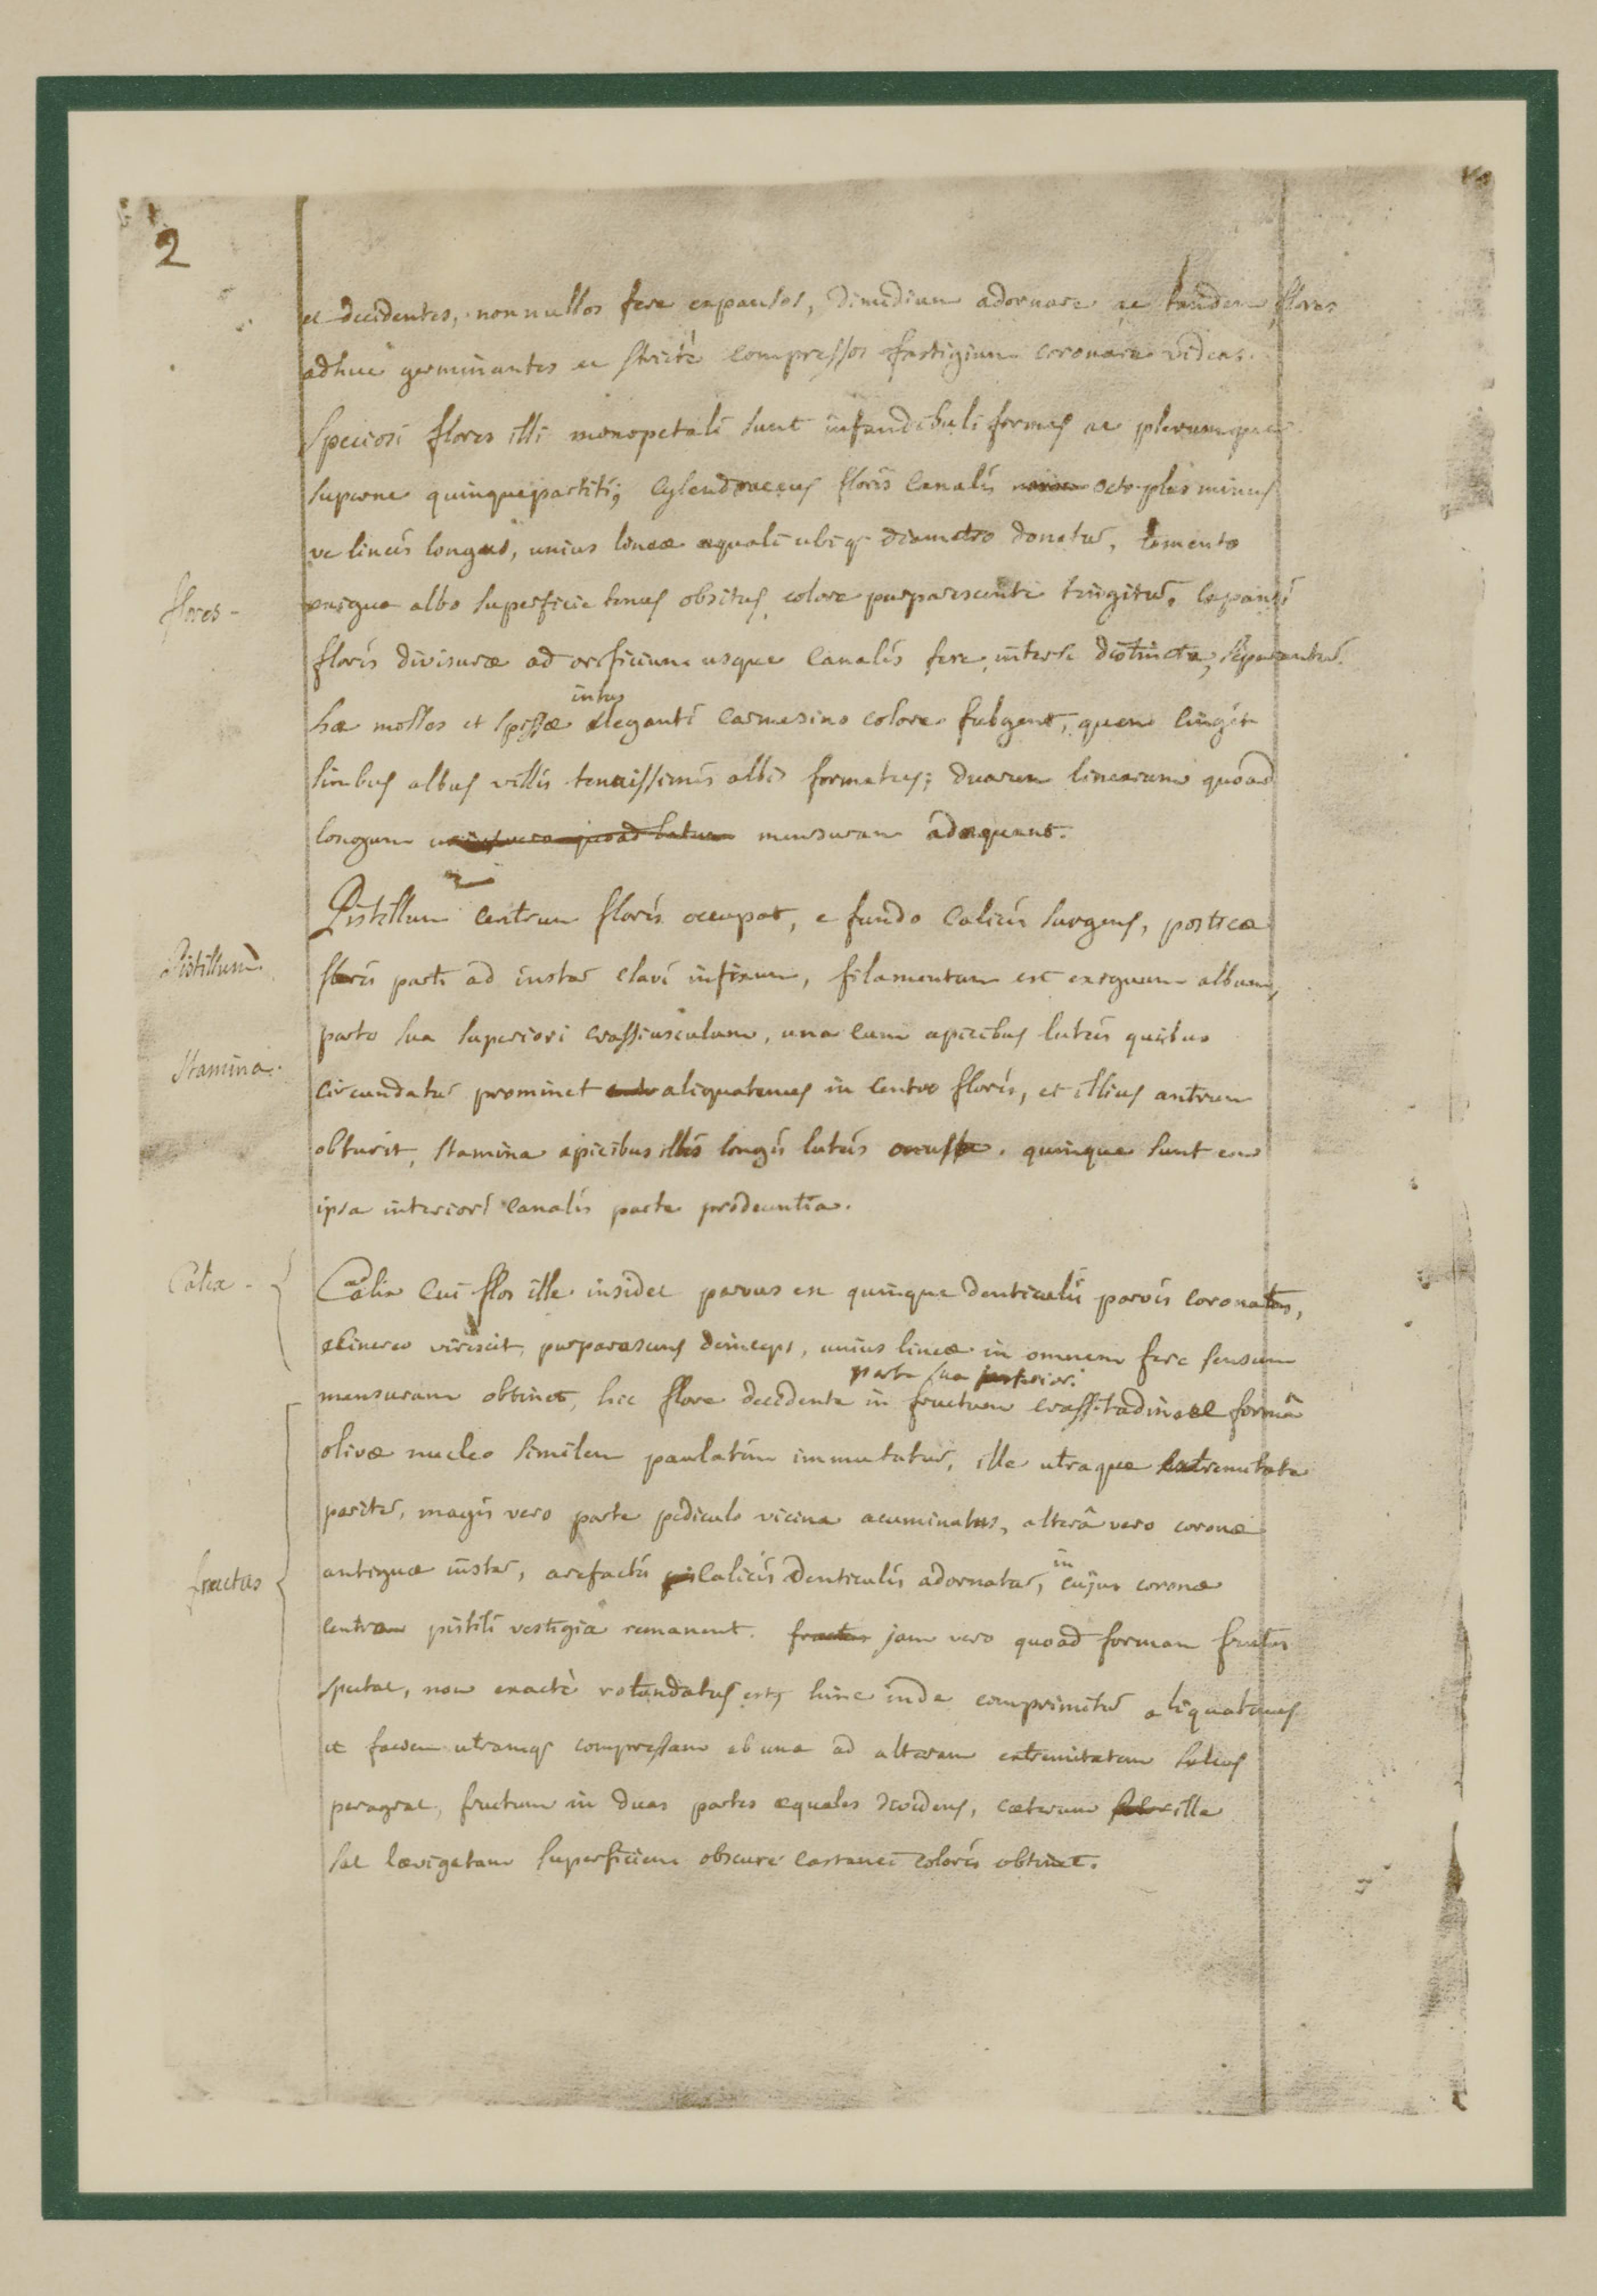 2
et decidentes, nonnullos fere expansos, dimidium adornare ac tandem flores
adhuc germinantes et strictè compressos fastigium coronare videas.
Speciosi flores illi monopetali sunt infundibuli formes ac plerumque
superne quinquepartiti; cylendraceus floris canalis octo plus minus
ve lineis longus, unius lineæ æquali ubiq; diametro donatur, tomento
flores -
exiguo albo superficie tenus obsitus, colore purparescente tingitur. expansi
floris divisuræ ad orificium usque canalis fere inter se distincte, separantur.
intus
hæ molles et spissæ eleganti carmesino colore fulgent, quem cingit
limbus albus villis tenuissimis albis formatus; duarum linearum quoad
longum unius vero quoad latum mensuram adæquant.
Pistillum centrum floris occupat, e fundo calicis surgens, posticæ
Pistillum.
floris parti ad instar clavi infixum, filamentum est exiguum album,
parte sua superiori crassiusculum, una cum apicibus luteis quibus
Stamina.
circundatur prominet aliquatenus in centro floris, et illius antrum
obturit, stamina apicibus illis longis luteis onusta. quinque sunt
ipsa interiori canalis parte prodeuntia.
Calix -
Calix cui flos ille insidet parvus est quinque denticulis parvis coronatus,
e cinereo virescit, purparascens deinceps, unius lineæ in omnem fere sensum
parte sua
mensuram obtinet, hic flore decidente in fructum crassitudine et formâ
olivæ nucleo similem paulatim immutatur, ille utraque extremitate
pariter, magis vero parte pediculo vicina acuminatus, alterâ vero coronæ
in
fructus
antiquæ instar, arefactis calicis denticulis adornatur, cujus coronæ
centrum pistili vestigia remanent. fructus jam vero quoad formam fructus
spectat, non exactè rotundatus est, hinc inde comprimitur aliquatenus
et faciem utramq; compressam ab una ad alteram extremitatem sulcus
peragrat, fructum in duas partes æquales dividens, cæterum ille
sat lævigatam superficiem obscure castanei coloris obtinet.